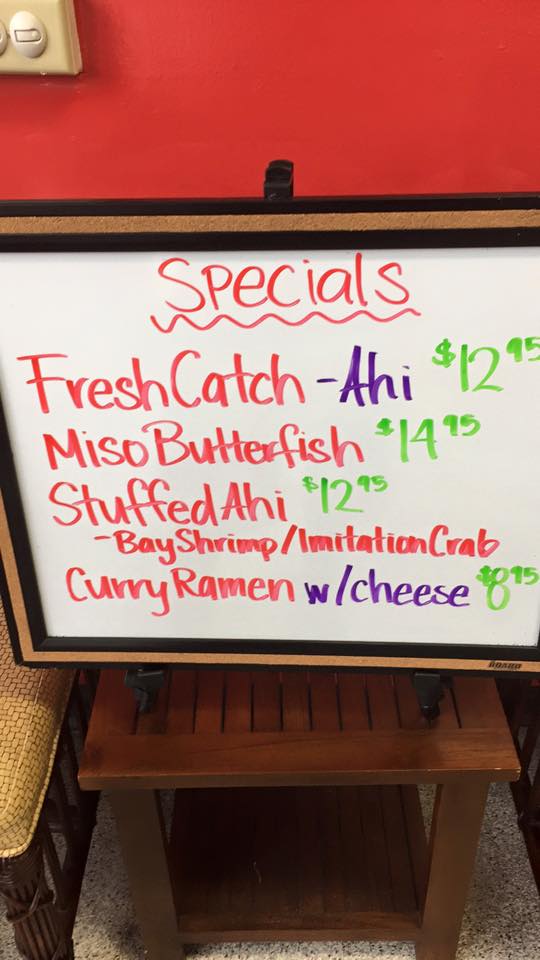 Specials
Fresh Catch - Ahi $12.95
Miso Butterfish $14.95
Stuffed Ahi $12.95
- Bay Shrimp/Imitation Crab
Curry Ramen w/cheese $8.95
BOARD